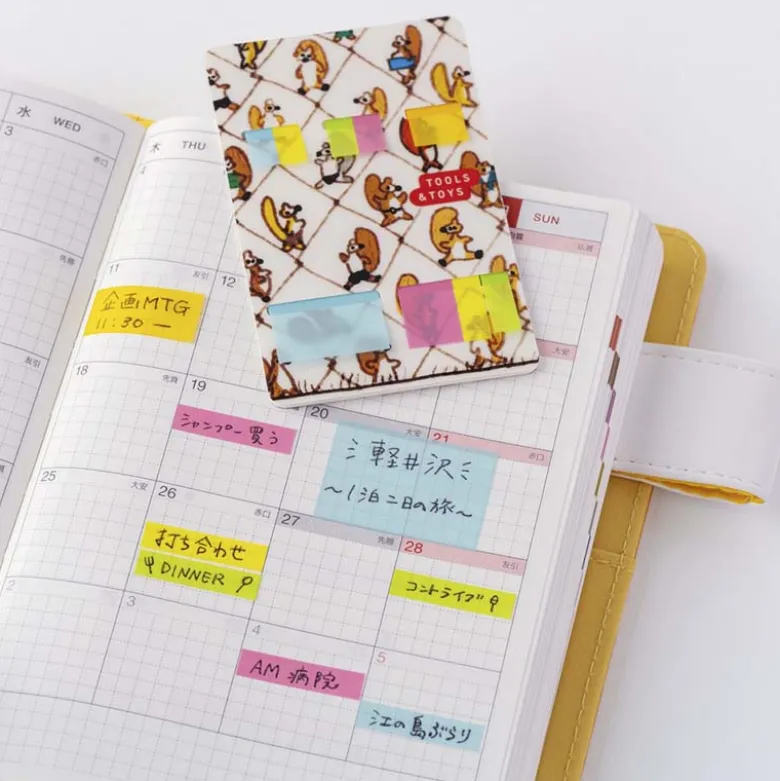 水 WED
木 THU
SUN
TOOLS
&TOYS
3
赤口
4
仏滅
11
友引
12
企画MTG
11:30 ー
先勝
大安
18
先負
19
シャンプー買う
20
大安
21
赤口
軽井沢
〜1泊二日の旅〜
友引
25
大安
26
赤口
27
先勝
28
友引
打ち合わせ
DINNER
コントライブ
2
3
4
5
AM 病院
江の島ぶらり